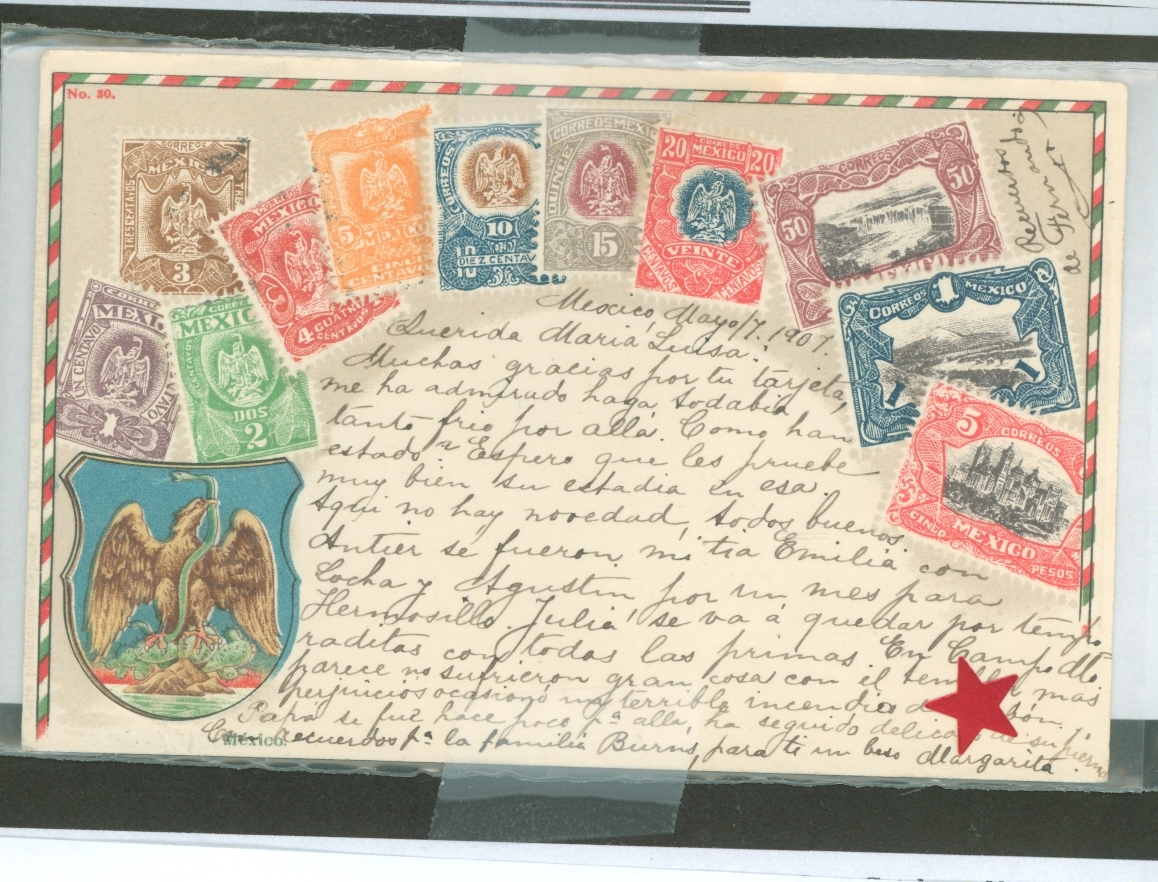 No. 30.
CORREOS
MEXICO
TRESCENTAVOS
3
CORREOS
MEXICO
4 CUATRO
CENTAVOS
5
MEXICO
CINCO
CENTAVOS
CORREOS
10
DIEZ CENTAVOS
CORREOS MEXICO
QUINCE
15
CORREOS
20 MEXICO 20
VEINTE
CENTAVOS CENTAVOS
CORREOS
50
50
CORREOS 1 MEXICO
1 1
5
CORREOS
5
CINCO MEXICO PESOS
CORREOS
MEXICO
UN CENTAVO
CENTAVO
1
CORREOS
MEXICO
CENTAVOS
DOS
2
Recuerdos
de Fernando
Mexico, Mayo, 7, 1907.
Querida Maria Luisa.
Muchas gracias por tu tarjeta,
me ha admirado haga todabia
tanto frio por allá. Como han
estado? Espero que les pruebe
muy bien su estadia en esa.
Aqui no hay novedad, todos buenos.
Antier se fueron mi tia Emilia con
Locha y Agustin por un mes para
Hermosillo. Julia se va á quedar por tempo
raditas con todas las primas. En Campo
parece no sufrieron gran cosa con el mas
perjuicios ocasionó un terrible incendio
Papá se fué hace poco pª allá, ha seguido de su pierna
Con recuerdos pª la familia Burns, para ti un beso Margarita.
Mexico.